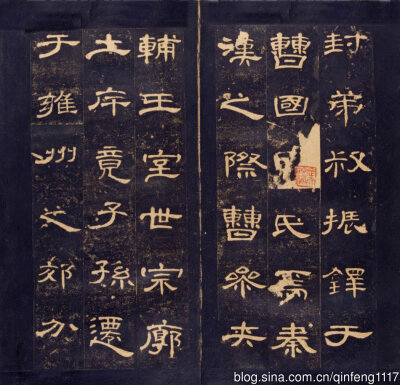 封弟叔振鐸于
曹國因氏焉秦
漢之際曹參夾
輔王室世宗廓
土斥竟子孫遷
于雍州之郊分
blog.sina.com.cn/qinfeng1117